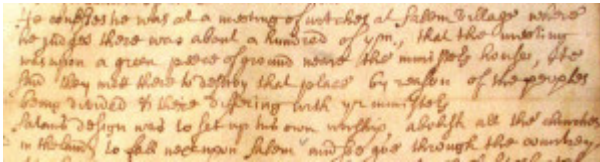 He confesses he was at a meeting of witches at Salem Village where
he judges there was about a hundred of ym, that the meeting
was upon a green peece of ground neere the ministers house, He
said they mett there to destroy that place by reason of the peoples
being divided & there differing with yr ministers
Satans design was to set up his own worship, abolish all the churches
in the land, to fall next upon Salem and soe goe through the countrey